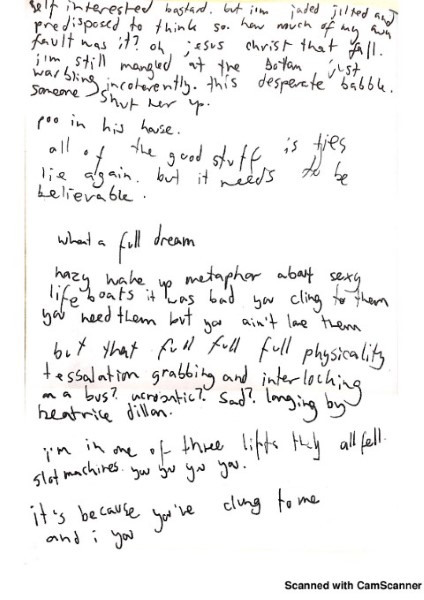 self interested bastard. but i'm jaded jilted and
predisposed to think so. how much of my own
fault was it? oh jesus christ that fall.
i'm still mangled at the bottom just
warbling incoherently. this desperate babble.
someone shut her up.
poo in his house.
all of the good stuff is ties
lie again. but it needs to be
believable.
what a full dream
hazy wake up metaphor about sexy
life boats it was bad you cling to them
you need them but you ain't love them
but that full full full physicality
tessalation grabbing and interlocking
on a bus? acrobatic? sad? longing by
beatrice dillon.
i'm in one of three lifts they all fell.
slot machines. you you you you.
it's because you've clung to me
and i you
Scanned with CamScanner